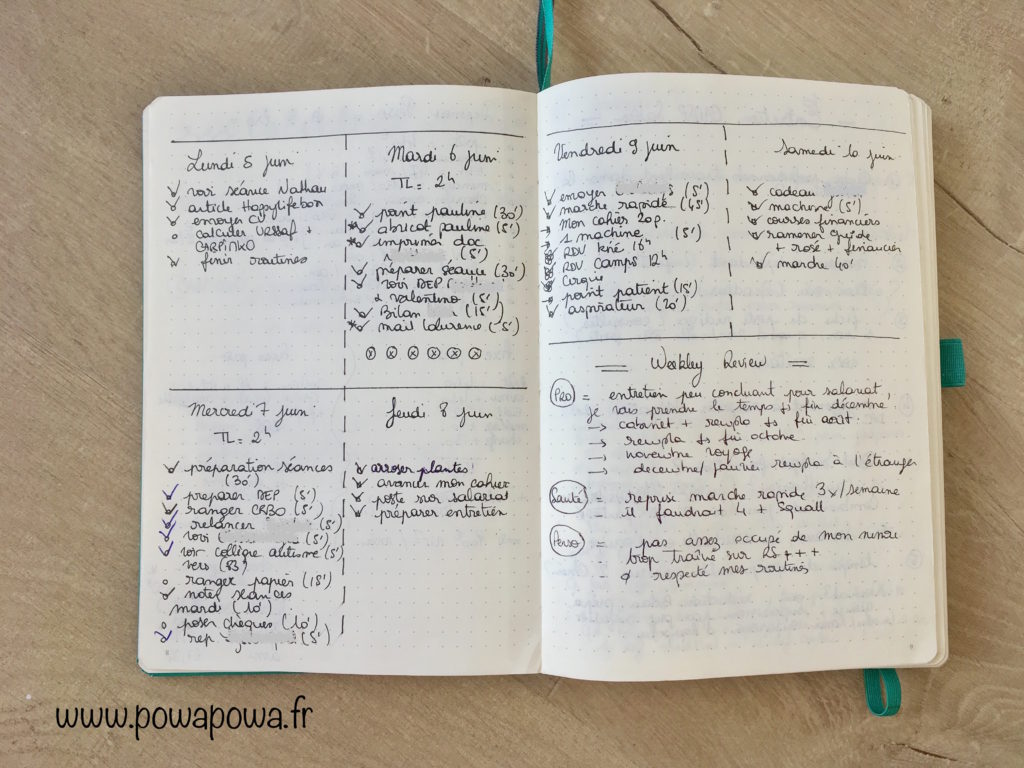 Lundi 5 juin
voir séance Nathan
article Happylifebox
envoyer CV
calculer URSSAF +
CARPIMKO
finir routines
Mardi 6 juin
TL = 2h
point pauline (30')
abricot pauline (5')
imprimer doc
(5')
préparer séance (30')
voir BEP
& Valentino (5')
Bilan (15')
mail laurence (5')
Mercredi 7 juin
TL = 2h
préparation séances
(30')
préparer BEP (5')
ranger CRBO (5')
relancer (5')
(5')
voir collègue autisme (5')
vers
ranger papier (15')
noter séances
mardi (10')
poser chèques (10')
rep (5')
Jeudi 8 juin
arroser plantes
avancer mon cahier
poste sur salariat
préparer entretien
Vendredi 9 juin
envoyer (5')
marche rapide (45')
Mon cahier 20p.
1 machine (5')
RDV kiné 16h
RDV Camps 12h
Cirque
point patient (15')
aspirateur (20')
Samedi 10 juin
cadeau
machine (5')
courses financiers
ramener guide
+ rosé + financier
marche 40'
Weekly Review
PRO = entretien peu concluant pour salariat,
je vais prendre le temps fin décembre.
→ cabinet + rempla fin août.
→ rempla fin octobre
→ novembre voyage
→ decembre/janvier rempla à l'étranger
Santé = reprise marche rapide 3x/semaine
= il faudrait 4 + Squall
Perso = pas assez occupé de mon minou
= trop traîné sur RS +++
respecté mes routines
www.powapowa.fr